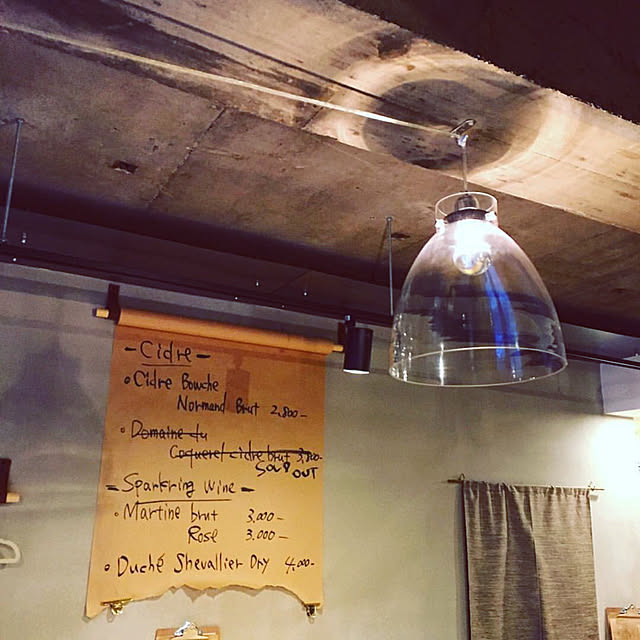 - Cidre -
• Cidre Bouche
Normand Brut 2,800-
• Domaine du
Coquerel cidre brut 3,800-
SOLD OUT
= Sparkring wine -
• Martine brut 3,000-
Rose 3,000-
• Duché Shevallier Dry 4,000-